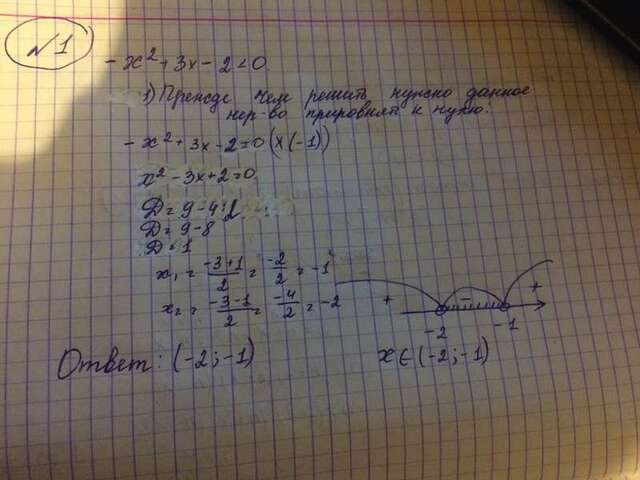 №1
-x² + 3x - 2 < 0.
1) Прежде чем решить нужно данное
нер-во прировнять к нулю:
-x² + 3x - 2 = 0 (x(-1))
x² - 3x + 2 = 0
D = 9 - 4·2
D = 9 - 8
D = 1
x₁ = -3+1/2 = -2/2 = -1
x₂ = -3-1/2 = -4/2 = -2
+ - +
-2 -1
Ответ: (-2; -1)
x ∈ (-2; -1)